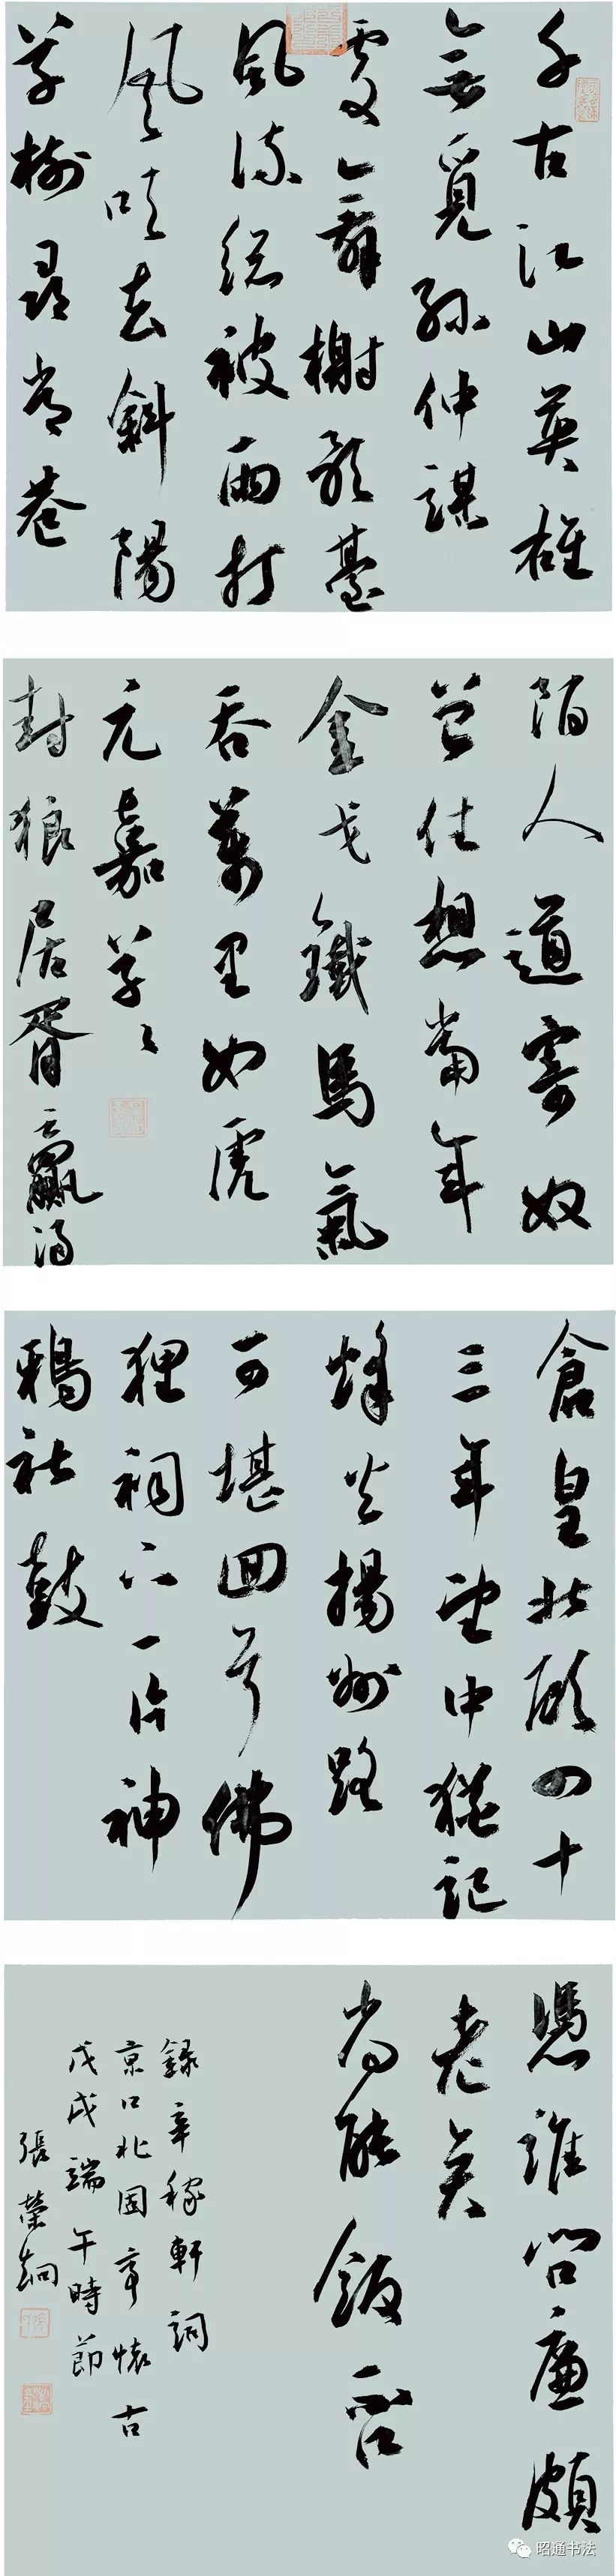 千古江山英雄
無覓孫仲謀
處舞榭歌臺
風流總被雨打
風吹去斜陽
草樹尋常巷
陌人道寄奴
曾住想當年
金戈鐵馬氣
吞萬里如虎
元嘉草々
封狼居胥贏得
倉皇北顧四十
三年望中猶記
烽火揚州路
可堪回首佛
狸祠下一片神
鴉社鼓
憑誰問廉頗
老矣
尚能飯否
錄辛稼軒詞
京口北固亭懷古
戊戌端午時節
張榮
昭通书法